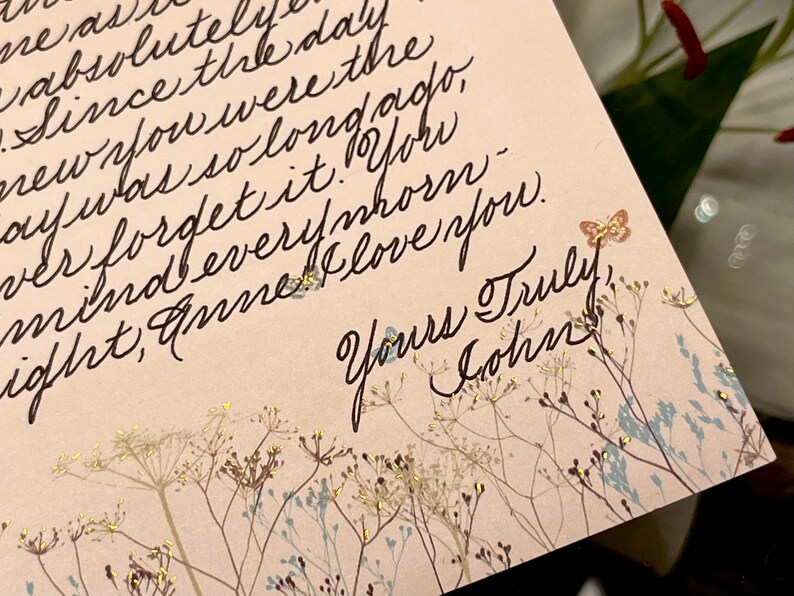 me as it
absolutely
. Since the day
new you were the
ay was so long ago,
ver forget it. You
mind every morn-
ight, Anne. I love you.
Yours Truly,
John